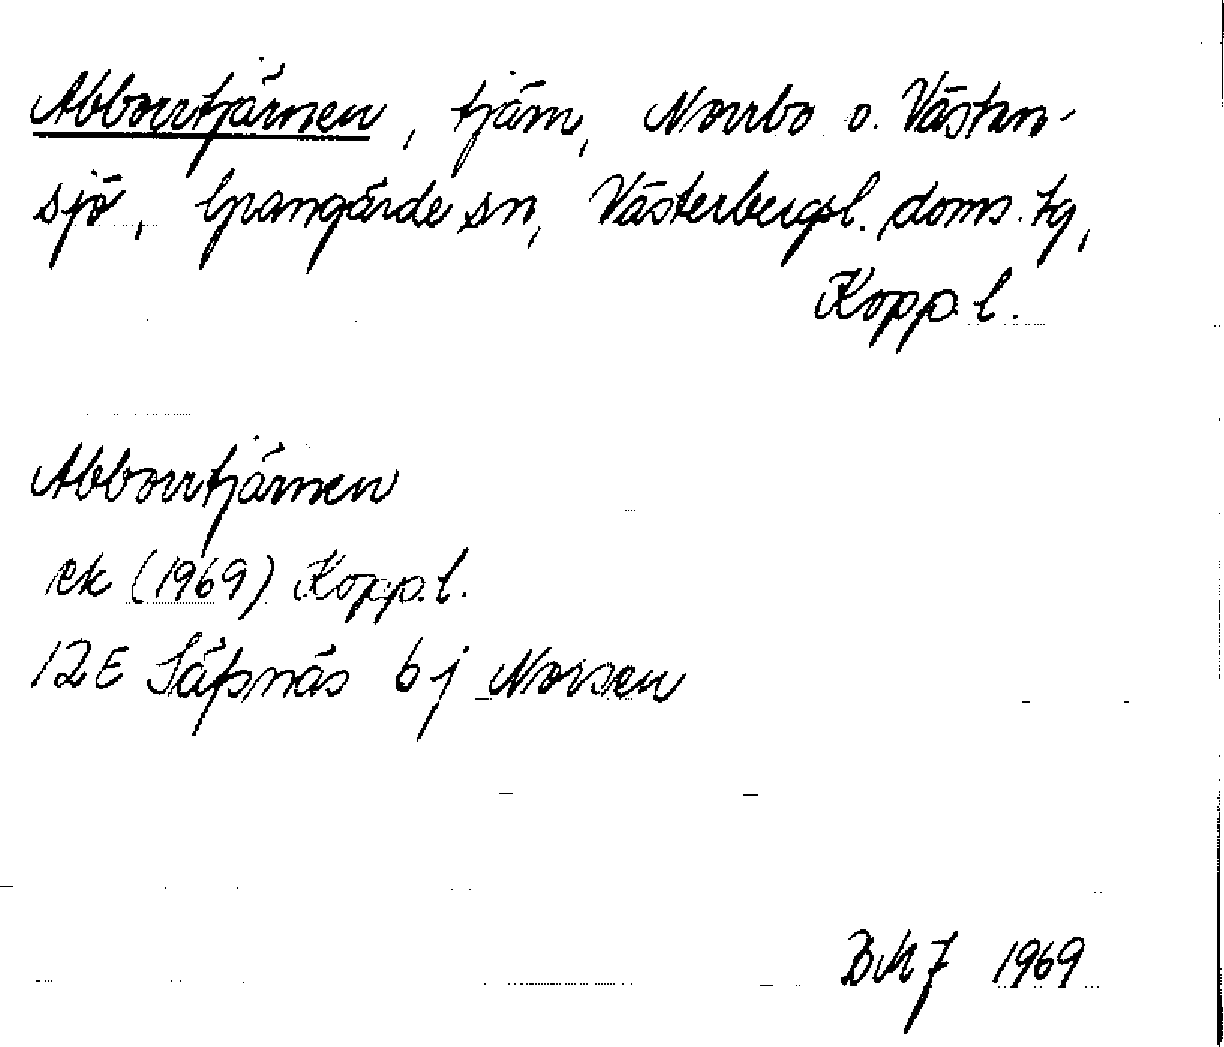 Abborrtjärnen, tjärn, Norrbo o. Västan-
sjö, Grangärde sn, Västerbergsl. doms. tg,
Kopp. l.
Abborrtjärnen
ek (1969) Kopp. l.
12E Säfsnäs 6j Norsen
BMJ 1969